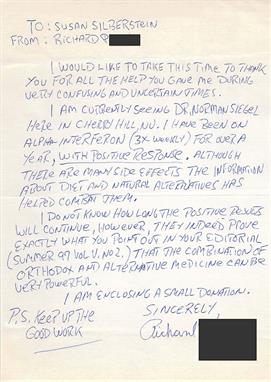 TO: SUSAN SILBERSTEIN
FROM: RICHARD
I WOULD LIKE TO TAKE THIS TIME TO THANK
YOU FOR ALL THE HELP YOU GAVE ME DURING
VERY CONFUSING AND UNCERTAIN TIMES.
I AM CURRENTLY SEEING DR. NORMAN SIEGEL
HERE IN CHERRY HILL, NJ. I HAVE BEEN ON
ALPHA INTERFERON (3X WEEKLY) FOR OVER A
YEAR, WITH POSITIVE RESPONSE. ALTHOUGH
THERE ARE MANY SIDE EFFECTS THE INFORMATION
ABOUT DIET AND NATURAL ALTERNATIVES HAS
HELPED COMBAT THEM.
I DO NOT KNOW HOW LONG THE POSITIVE RESULTS
WILL CONTINUE, HOWEVER, THEY INDEED PROVE
EXACTLY WHAT YOU POINT OUT IN YOUR EDITORIAL
(SUMMER 97 VOL V. NO 2.) THAT THE COMBINATION OF
ORTHODOX AND ALTERNATIVE MEDICINE CAN BE
VERY POWERFUL.
I AM ENCLOSING A SMALL DONATION.
P.S. KEEP UP THE
GOOD WORK
SINCERELY,
Richard